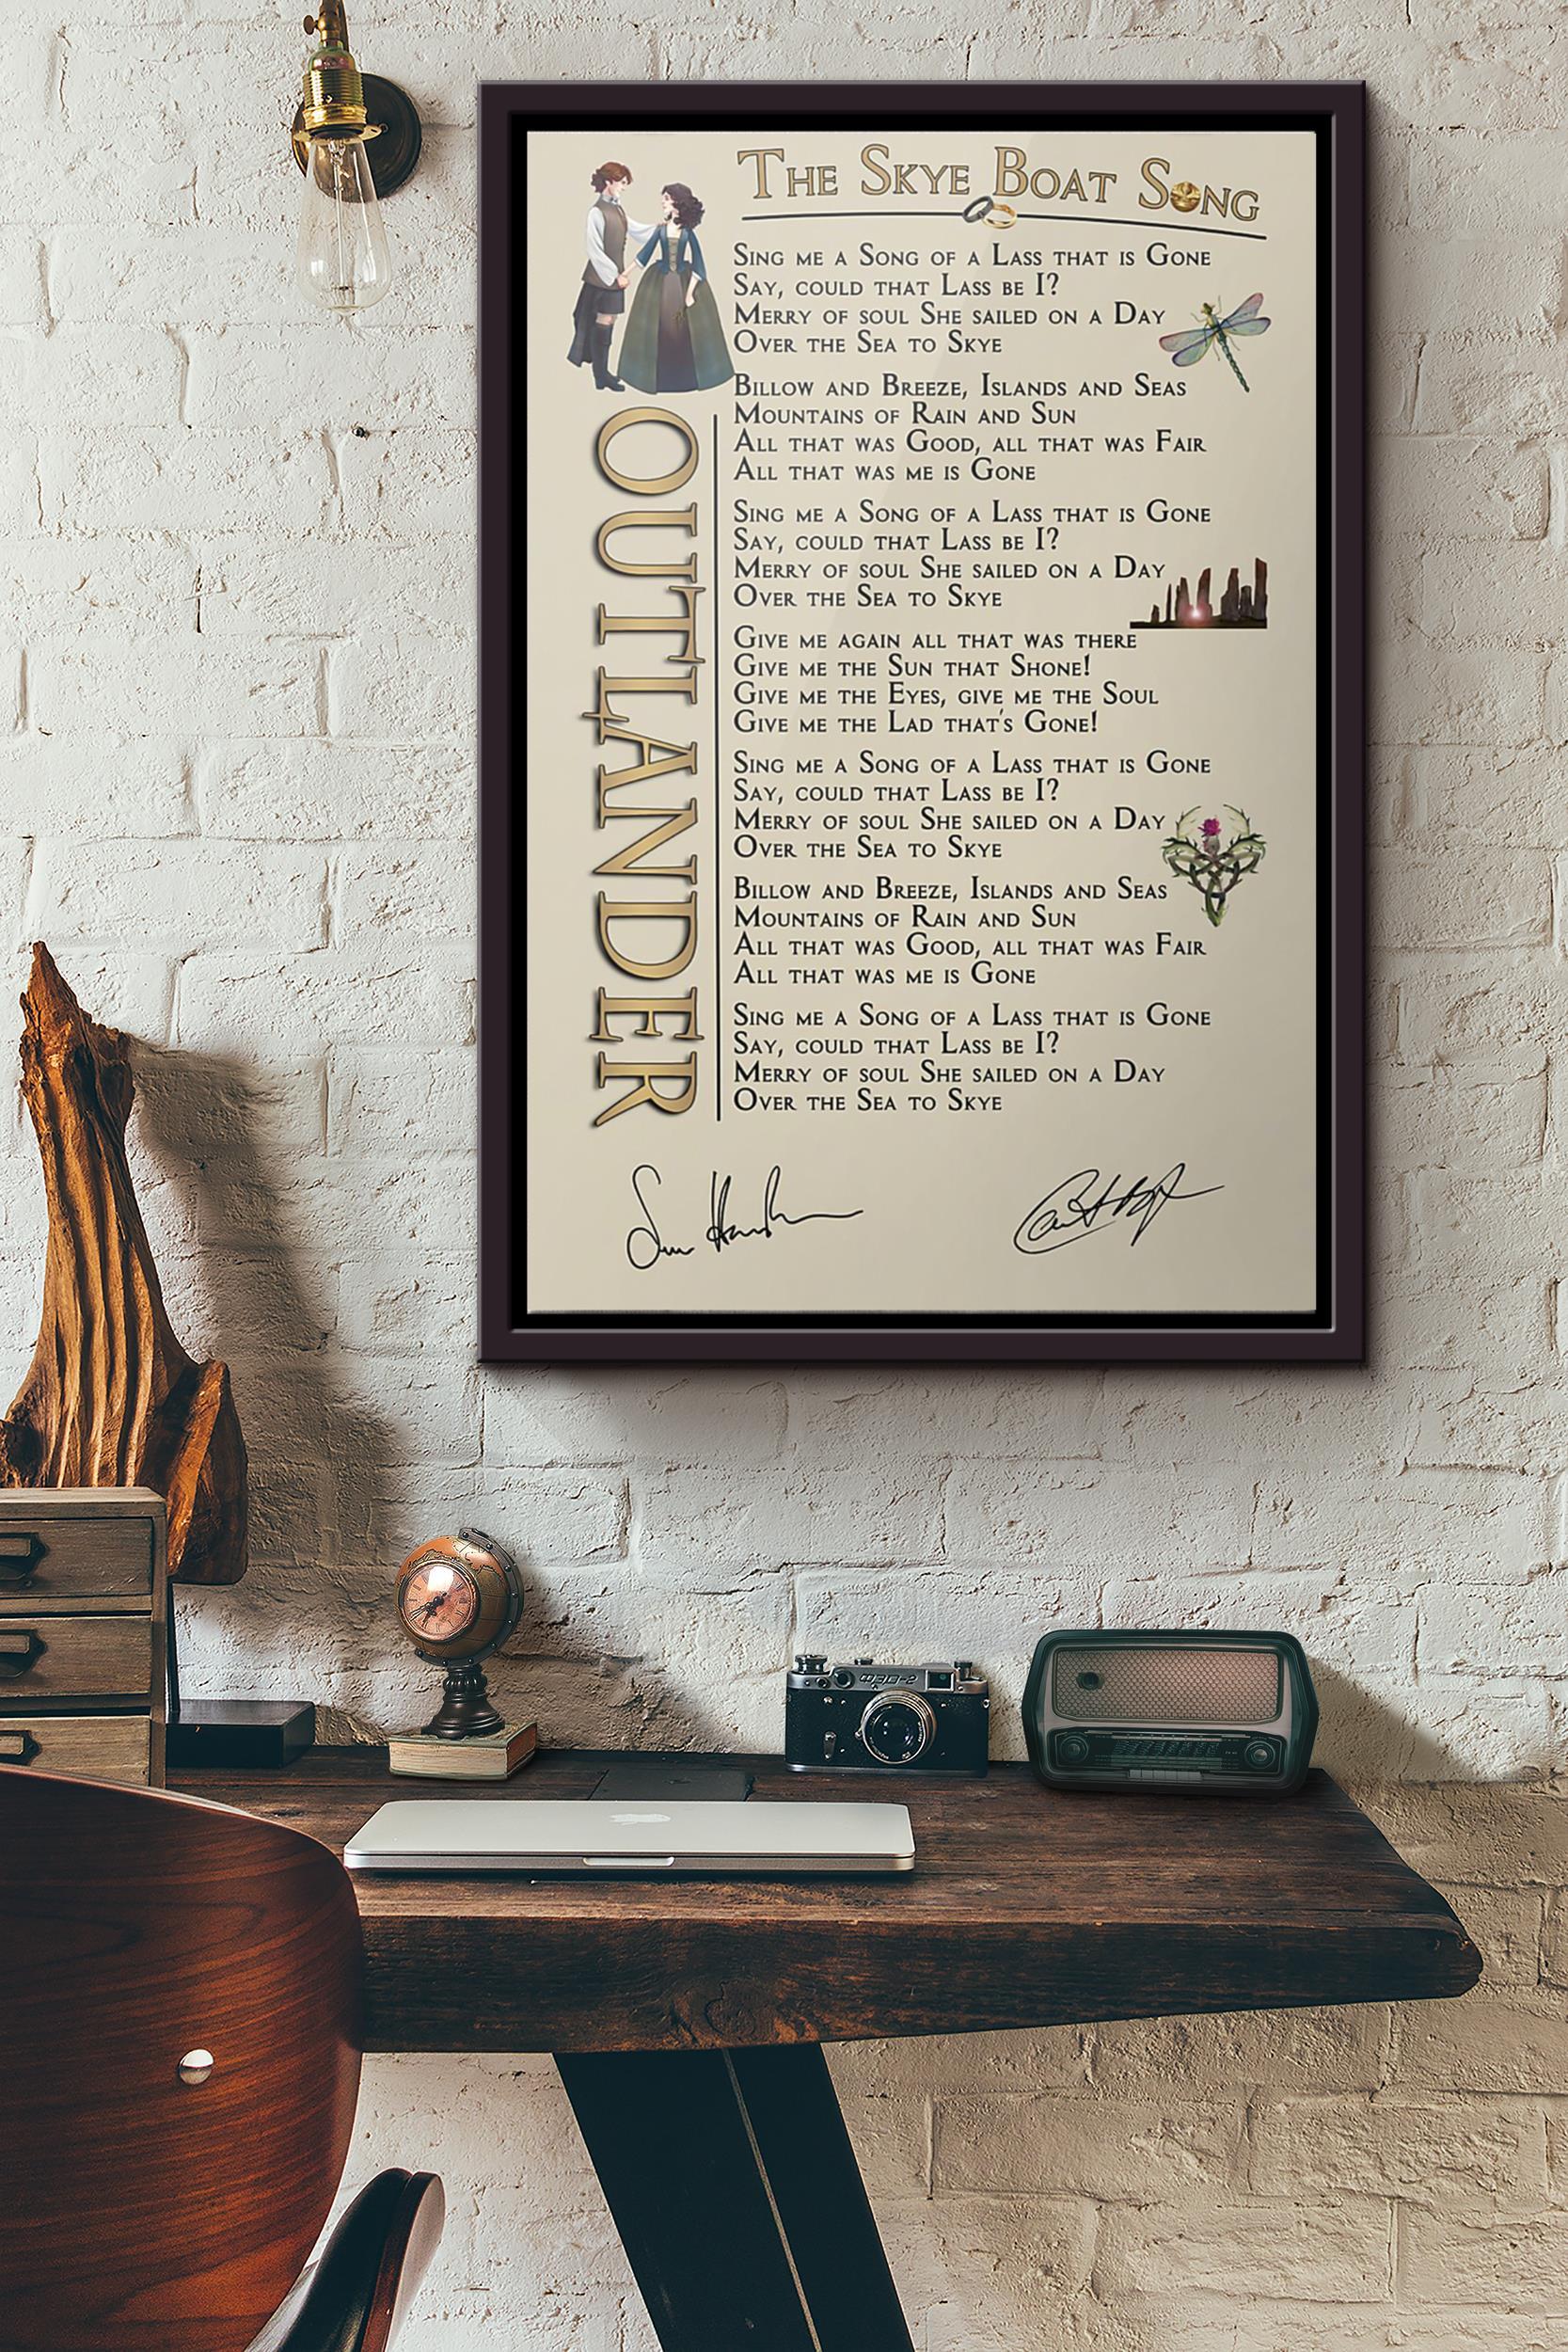 The Skye Boat Song
Sing me a Song of a Lass that is Gone
Say, could that Lass be I?
Merry of soul She sailed on a Day
Over the Sea to Skye
Billow and Breeze, Islands and Seas
Mountains of Rain and Sun
All that was Good, all that was Fair
All that was me is Gone
Sing me a Song of a Lass that is Gone
Say, could that Lass be I?
Merry of soul She sailed on a Day
Over the Sea to Skye
Give me again all that was there
Give me the Sun that Shone!
Give me the Eyes, give me the Soul
Give me the Lad that's Gone!
Sing me a Song of a Lass that is Gone
Say, could that Lass be I?
Merry of soul She sailed on a Day
Over the Sea to Skye
Billow and Breeze, Islands and Seas
Mountains of Rain and Sun
All that was Good, all that was Fair
All that was me is Gone
Sing me a Song of a Lass that is Gone
Say, could that Lass be I?
Merry of soul She sailed on a Day
Over the Sea to Skye
OUTLANDER